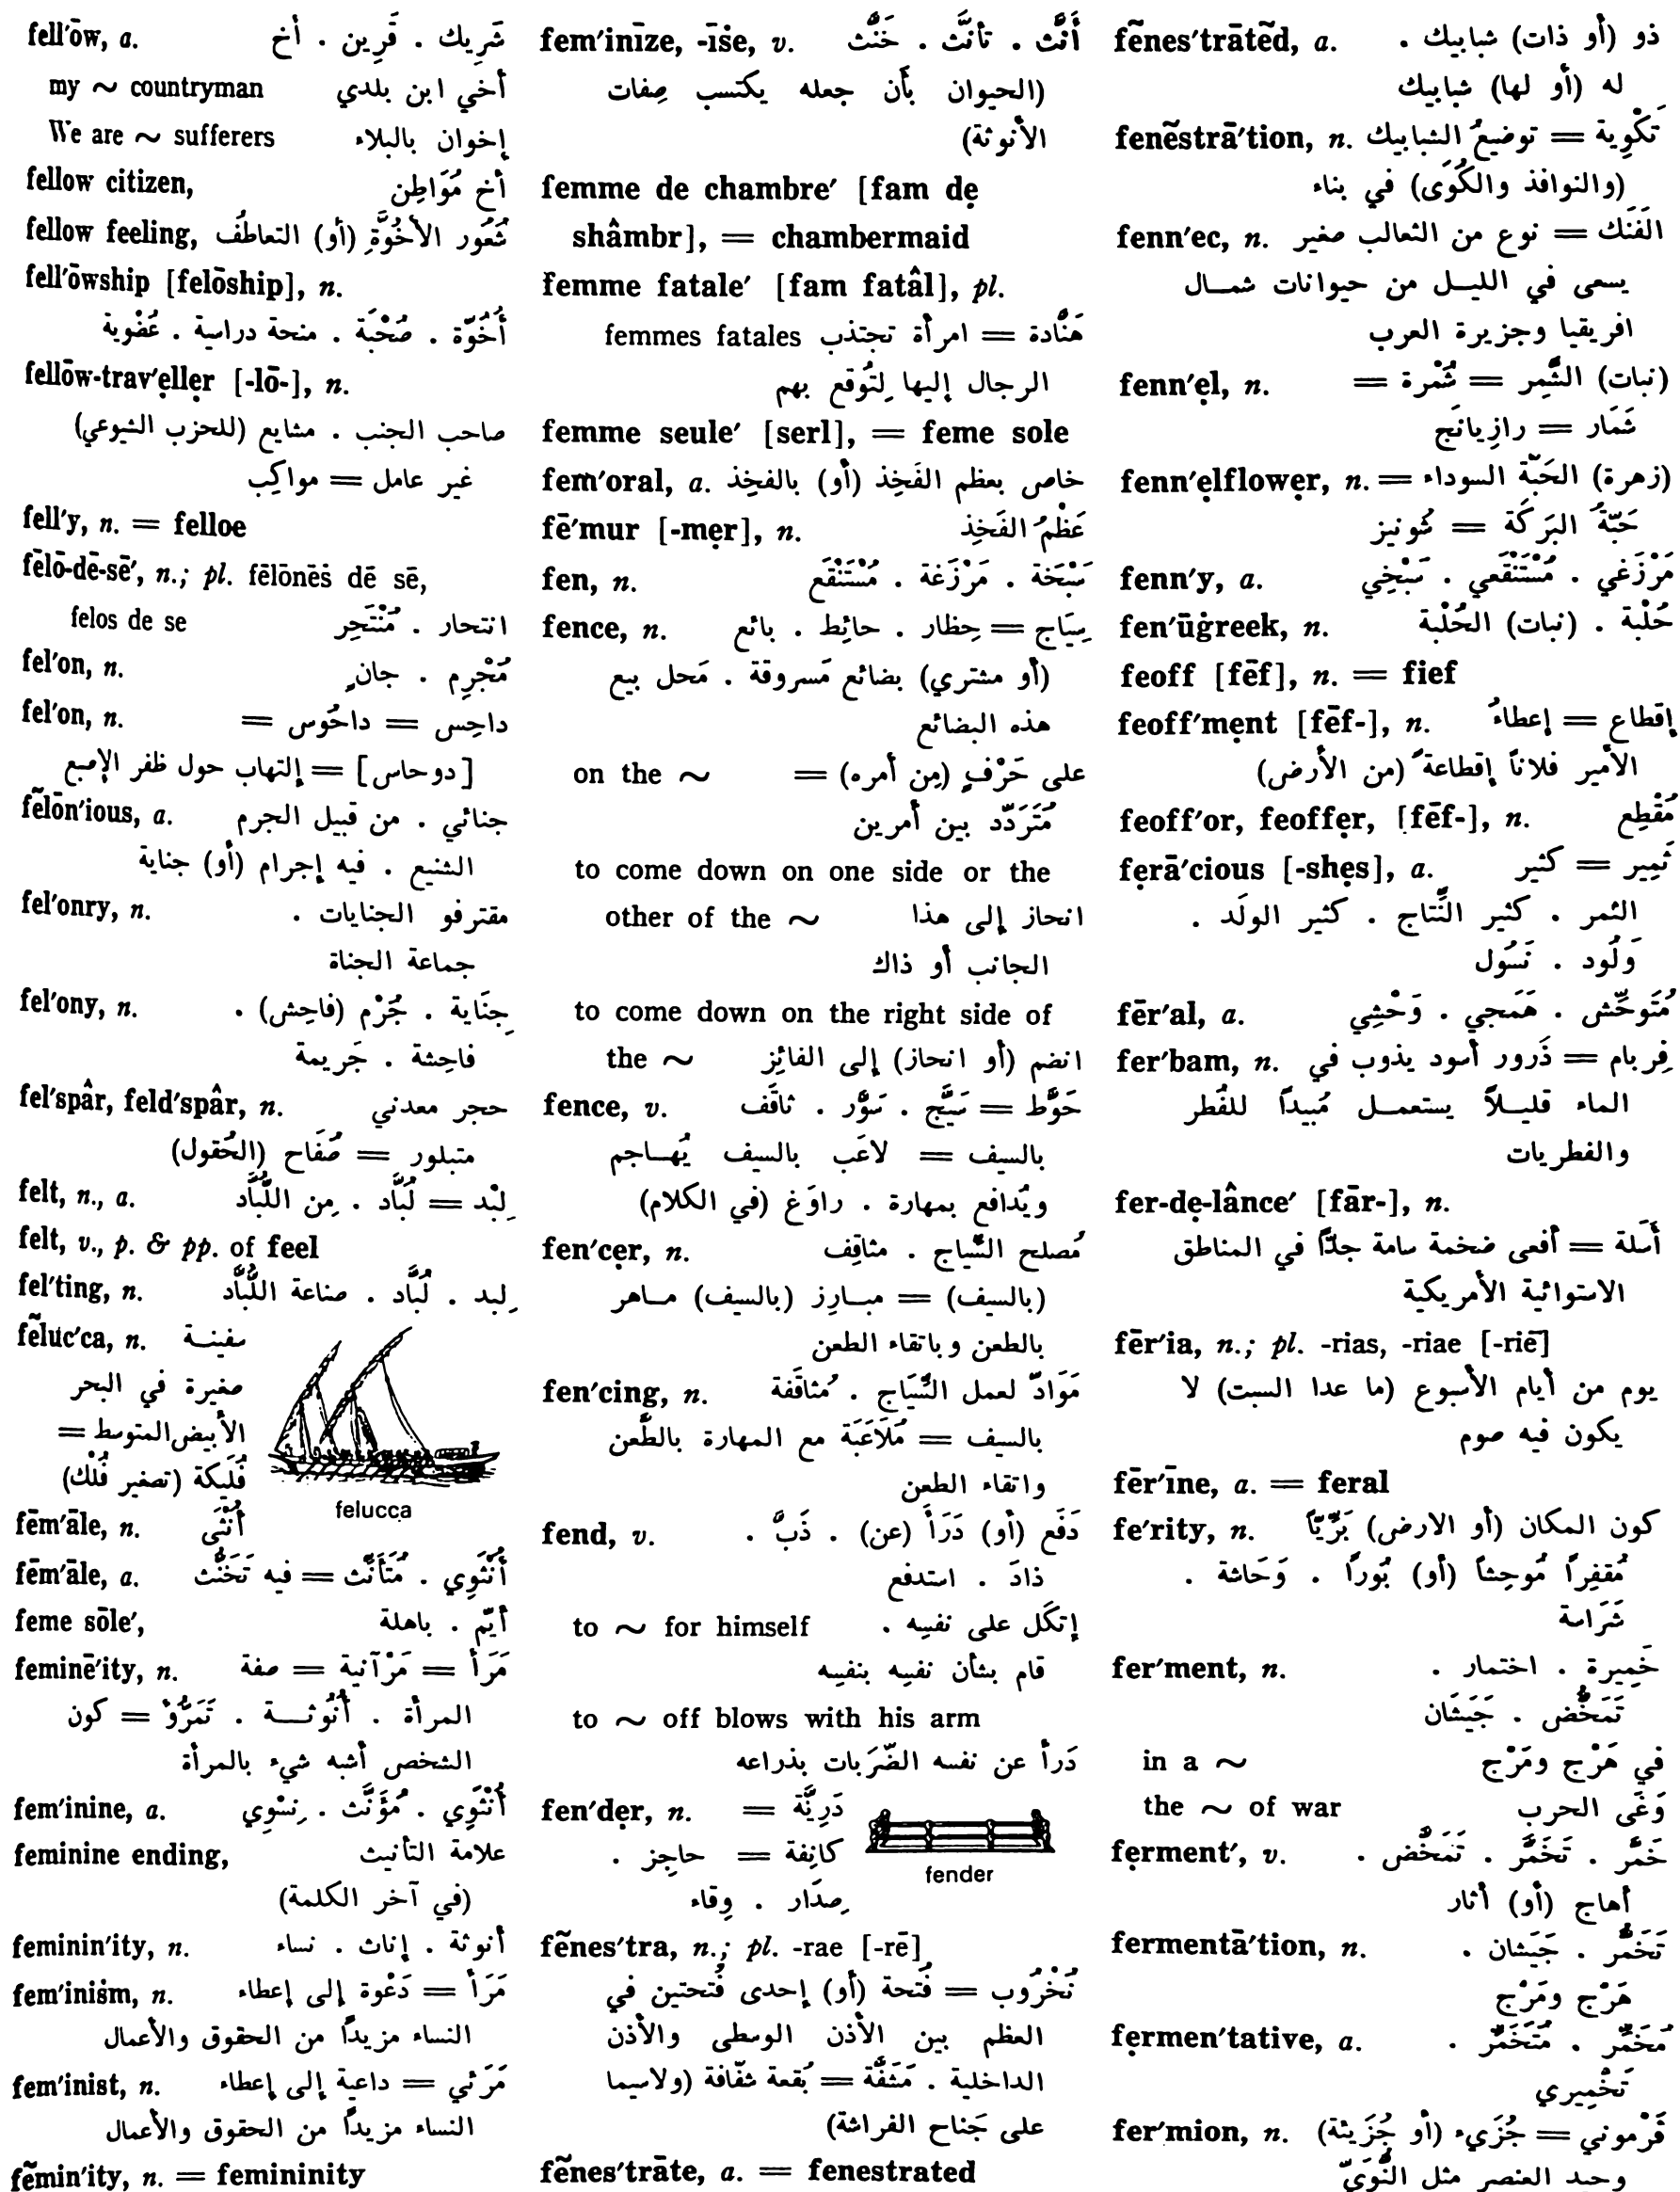 fell'ōw, a. شَرِيك . قَرِين . أخ
my ~ countryman أخي ابن بلدي
We are ~ sufferers إخوان بالبلاء
fellow citizen, أخ مُوَاطِن
fellow feeling, شُعُور الأخُوَّةِ (أو) التعاطُف
fell'ōwship [felōship], n.
أُخُوّة . صُحْبَة . منحة دراسية . عُضْوية
fellōw-trav'ẹllẹr [-lō-], n.
صاحب الجنب . مشايع (للحزب الشيوعي)
غير عامل = مواكِب
fell'y, n. = felloe
fēlō-dē-sē', n.; pl. fēlōnēṡ dē sē,
felos de se انتحار . مُنْتَحِر
fel'on, n. مُجْرِم . جانٍ
fel'on, n. داحِس = داحُوس =
[دوحاس] = إلتهاب حول ظفر الإصبع
fẽlōn'ious, a. جنائي . من قبيل الجرم
الشنيع . فيه إجرام (أو) جناية
fel'onry, n. مقترفو الجنايات .
جماعة الجناة
fel'ony, n. جِنَاية . جُرْم (فاحِش) .
فاحِشة . جَريمة
fel'spâr, feld'spâr, n. حجر معدني
متبلور = صُفَاح (الحُقول)
felt, n., a. لِبْد = لُبَّاد . مِن اللُّبَّاد
felt, v., p. & pp. of feel
fel'ting, n. لِبد . لُبَّاد . صناعة اللُّبَّاد
fẽluc'ca, n. سفينة
صغيرة في البحر
الأبيض المتوسط =
فُلَيكة (تصغير فُلْك)
felucca
fēm'āle, n. أُنْثَى
fēm'āle, a. أُنْثَوِي . مُتَأنِّث = فيه تَخَنُّث
feme sōle', أيِّم . باهلة
feminē'ity, n. مَرَأ = مَرْآنية = صفة
المرأة . أُنُوثة . تَمَرُّؤ = كون
الشخص أشبه شيء بالمرأة
fem'inine, a. أُنْثَوِي . مُؤَنَّث . نِسْوِي
feminine ending, علامة التأنيث
(في آخر الكلمة)
feminin'ity, n. أنوثة . إناث . نساء
fem'iniṡm, n. مَرَأ = دَعْوة إلى إعطاء
النساء مزيداً من الحقوق والأعمال
fem'inist, n. مَرَئي = داعية إلى إعطاء
النساء مزيداً من الحقوق والأعمال
fẽmin'ity, n. = femininity
fem'inīze, -īṡe, v. أَنَّث . تأنَّث . خَنَّث
(الحيوان بأن جعله يكتسب صِفات
الأنوثة)
femme de chambre' [fam dẹ
shâmbr], = chambermaid
femme fatale' [fam fatâl], pl.
femmes fatales هَنَّادة = امرأة تجتذب
الرجال إليها لِتُوقع بهم
femme seule' [serl], = feme sole
fem'oral, a. خاص بعظم الفَخِذ (أو) بالفخِذ
fē'mur [-mẹr], n. عَظْمُ الفَخِذ
fen, n. سَبْخَة . مَرْزَغة . مُسْتَنْقَع
fence, n. سِيَاج = حِظار . حائِط . بائع
(أو مشتري) بضائع مَسروقة . مَحل بيع
هذه البضائع
on the ~ على حَرْفٍ (مِن أمره) =
مُتَرَدِّد بين أمرين
to come down on one side or the
other of the ~ انحاز إلى هذا
الجانب أو ذاك
to come down on the right side of
the ~ انضم (أو انحاز) إلى الفائِز
fence, v. حَوَّط = سَيَّج . سَوَّر . ثاقَف
بالسيف = لاعَب بالسيف يُهاجم
ويُدافع بمهارة . راوَغ (في الكلام)
fen'cẹr, n. مُصلح السِّياج . مثاقِف
(بالسيف) = مبارِز (بالسيف) ماهر
بالطعن وباتقاء الطعن
fen'cing, n. مَوَادّ لعمل السِّيَاج . مُثاقَفة
بالسيف = مُلاَعَبَة مع المهارة بالطَّعن
واتقاء الطعن
fend, v. دَفَع (أو) دَرَأَ (عن) . ذَبَّ .
ذادَ . استدفع
to ~ for himself إتكَل على نفسِه .
قام بشأن نفسِه بنفسِه
to ~ off blows with his arm
دَرأ عن نفسه الضَّرَبات بذراعه
fen'dẹr, n. دَرِيَّة =
كانِفة = حاجِز .
صِدَار . وِقاء
fender
fẽnes'tra, n.; pl. -rae [-rē]
نُخْرُوب = فُتحة (أو) إحدى فُتحتين في
العظم بين الأذن الوسطى والأذن
الداخلية . مَشَفَّة = بُقعة شفّافة (ولاسيما
على جَناح الفراشة)
fẽnes'trāte, a. = fenestrated
fẽnes'trātẽd, a. ذو (أو ذات) شبابيك .
له (أو لها) شبابيك
fenẽstrā'tion, n. تَكْوِية = توضيعُ الشبابيك
(والنوافذ والكُوَى) في بناء
fenn'ec, n. الفَنَك = نوع من الثعالب صغير
يسعى في الليل من حيوانات شمال
افريقيا وجزيرة العرب
fenn'ẹl, n. (نبات) الشَّمِر = شُمْرة =
شَمَار = رازِيانَج
fenn'ẹlflowẹr, n. (زهرة) الحَبّة السوداء =
حَبّةُ البَرَكَة = شُونيز
fenn'y, a. مَرْزَغي . مُسْتَنْقَعي . سَبْخِي
fen'ūġreek, n. حُلْبة . (نبات) الحُلْبة
feoff [fēf], n. = fief
feoff'mẹnt [fēf-], n. إقطاع = إعطاءُ
الأمير فلاناً إقطاعةً (من الأرض)
feoff'or, feoffẹr, [fēf-], n. مُقْطِع
fẹrā'cious [-shẹs], a. ثَمِير = كثير
الثمر . كثير النِّتاج . كثير الولَد .
وَلُود . نَسُول
fēr'al, a. مُتَوحِّش . هَمَجي . وَحْشِي
fer'bam, n. فِربام = ذَرور أسود يذوب في
الماء قليلاً يستعمل مُبيداً للفُطر
والفطريات
fer-dẹ-lânce' [fār-], n.
أَسَلة = أفعى ضخمة سامة جدّاً في المناطق
الاستوائية الأمريكية
fēr'ia, n.; pl. -rias, -riae [-riē]
يوم من أيام الأسبوع (ما عدا السبت) لا
يكون فيه صوم
fēr'īne, a. = feral
fe'rity, n. كون المكان (أو الارض) بَرِّيّاً
مُقفِراً مُوحِشاً (أو) بُوراً . وَحَاشة .
شَرَاسة
fer'ment, n. خَمِيرة . اختمار .
تَمَخُّض . جَيَشَان
in a ~ في هَرْج ومَرْج
the ~ of war وَغَى الحرب
fẹrment', v. خَمَّر . تَخَمَّر . تَمَخَّض .
أهاج (أو) أثار
fermentā'tion, n. تَخَمُّر . جَيَشان .
هَرْج ومَرْج
fẹrmen'tative, a. مُخَمِّر . مُتَخَمِّر .
تَخْمِيري
fer'mion, n. فَرْموني = جُزَيء (أو جُزَيئة)
وحيد العنصر مثل النُّوَيّ